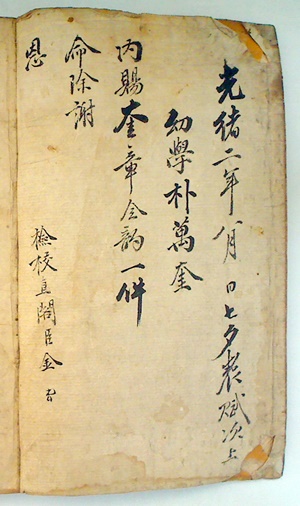 光緖二年八月 日七夕裴賦次上
幼學朴萬奎
內賜奎章全韵一件
命除謝
恩
檢校直閣臣金